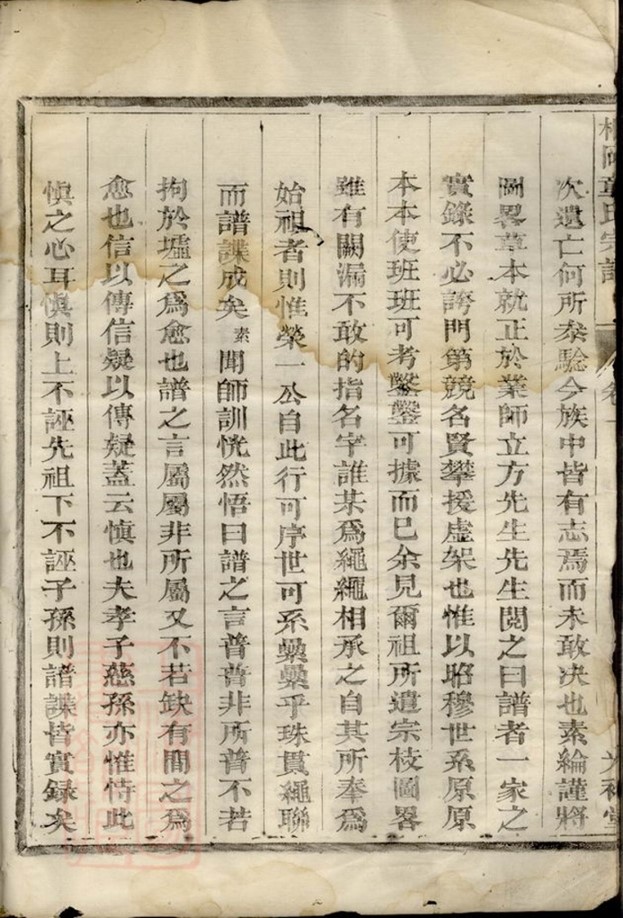 次遺亡何所叅騐今族中皆有志焉而未敢决也素綸謹將
圖畧草本就正於業師立方先生先生閱之曰譜者一家之
實錄不必誇門第競名賢攀援虛架也惟以昭穆世系原原
本本使班班可考鑿鑿可據而已余見爾祖所遺宗枝圖畧
雖有闕漏不敢的指名字誰某爲繩繩相承之自其所奉爲
始祖者則惟榮一公自此行可序世可系纍纍乎珠貫繩聯
而譜諜成矣素聞師訓恍然悟曰譜之言普普非所普不若
拘於墟之爲愈也譜之言屬屬非所屬又不若缺有間之爲
愈也信以傳信疑以傳疑蓋云慎也夫孝子慈孫亦惟恃此
慎之心耳慎則上不誣先祖下不誣子孫則譜諜皆實録矣